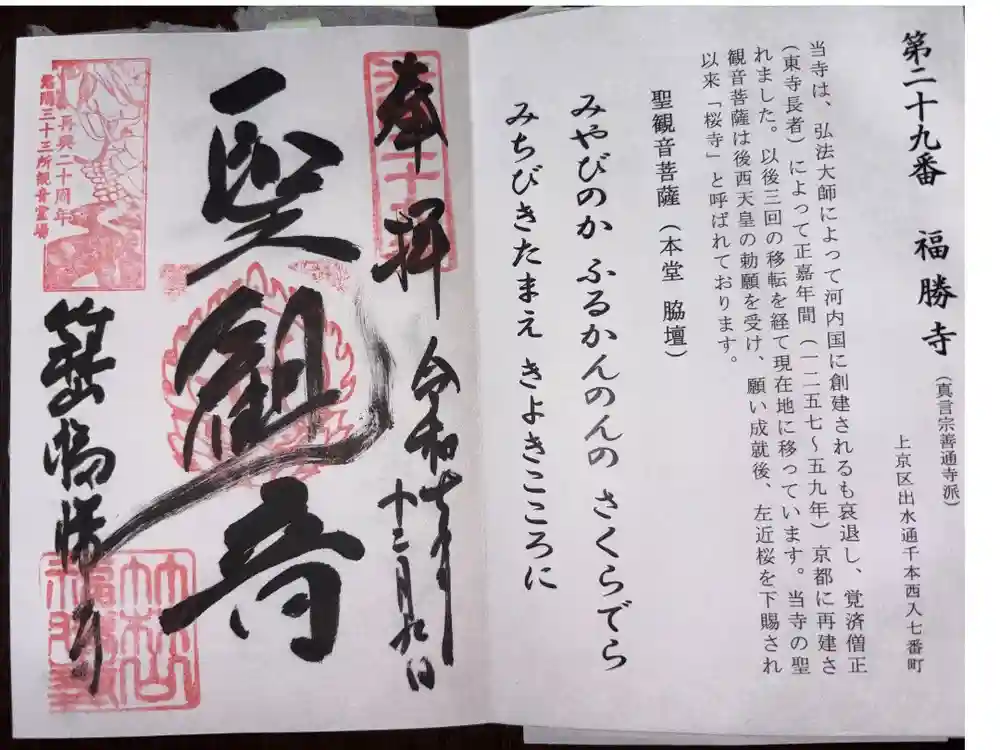 第二十九番 福勝寺(真言宗善通寺派)
上京区出水通千本西入七番町
当寺は、弘法大師によって河内国に創建されるも衰退し、覚済僧正
(東寺長者)によって正嘉年間(一二五七~五九年)京都に再建さ
れました。以後三回の移転を経て現在地に移っています。当寺の聖
観音菩薩は後西天皇の勅願を受け、願い成就後、左近桜を下賜され
以来「桜寺」と呼ばれております。
聖観音菩薩(本堂 脇壇)
みやびのか ふるかんのんの さくらでら
みちびきたまえ きよきこころに
奉拝
令和七年
十二月九日
聖観音
再興二十周年
洛陽三十三所観音霊場
福勝寺